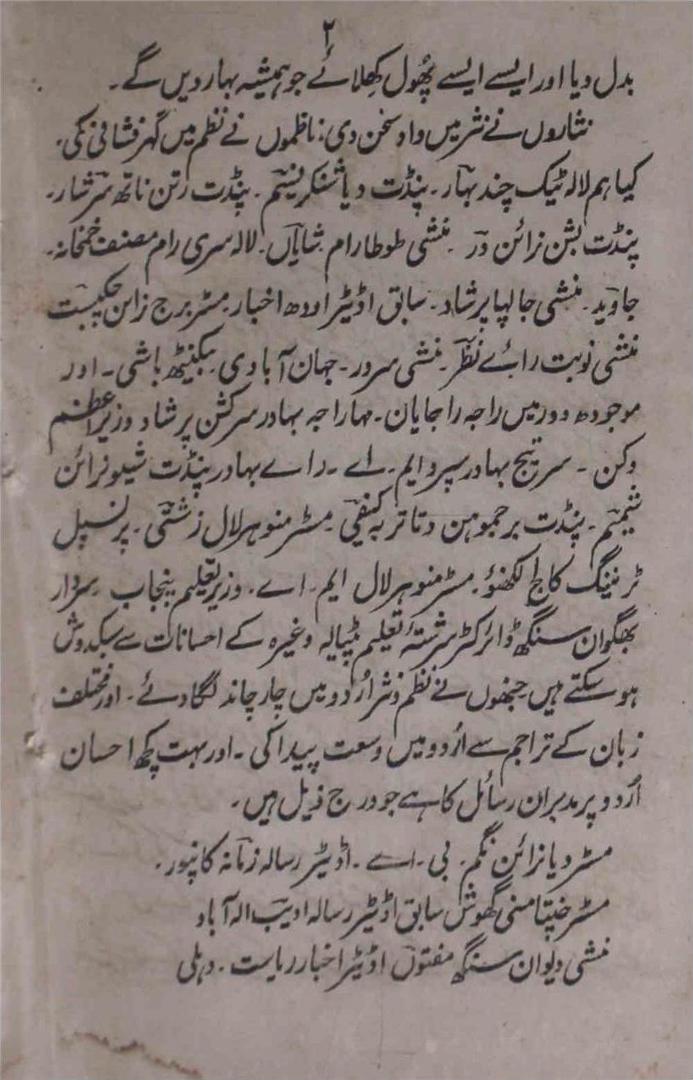 ۲
بدل دیا اور ایسے ایسے پھول کھلائے جو ہمیشہ بہار دیں گے۔
نثاروں نے نثر میں داد سخن دی؛ ناظموں نے نظم میں گہر فشانی کی۔
کیا ہم لالہ ٹیک چند بہار۔ پنڈت دیا شنکر نسیم۔ پنڈت رتن ناتھ سرشار۔
پنڈت بشن نرائن در۔ منشی طوطا رام شایاں۔ لالہ سری رام مصنف خمخانہ۔
جاوید۔ منشی جالپا پرشاد۔ سابق اڈیٹر اودھ اخبار۔ مسٹر برج نرائن چکبست
منشی نوبت رائے نظر۔ منشی سرور۔ جہان آبادی۔ بکنیٹھ باشی۔ اور
موجودہ دور میں راجہ راجایان۔ مہاراجہ بہادر سرکشن پرشاد وزیر اعظم
دکن۔ سر تیج بہادر سپرو ایم۔ اے۔ رائے بہادر پنڈت شیو نرائن
شمیم۔ پنڈت برجموہن دتاتریہ کیفی۔ مسٹر منوہر لال زتشی۔ پرنسپل
ٹرینینگ کالج لکھنؤ۔ مسٹر منوہر لال ایم۔ اے۔ وزیر تعلیم پنجاب۔ سردار
بھگوان سنگھ ڈائرکٹر سرشتۂ تعلیم پٹیالہ وغیرہ کے احسانات سے سبکدوش
ہو سکتے ہیں جنھوں نے نظم و نثر اردو میں چار چاند لگا دئے۔ اور مختلف
زبان کے تراجم سے اردو میں وسعت پیدا کی۔ اور بہت کچھ احسان
اردو پر مدبران رسائل کا ہے جو درج ذیل ہیں۔
مسٹر دیا نرائن نگم۔ بی۔ اے۔ اڈیٹر رسالہ زمانہ کانپور۔
مسٹر گھوش سابق اڈیٹر رسالہ ادیب الہ آباد
منشی دیوان سنگھ مفتون اڈیٹر اخبار ریاست۔ دہلی